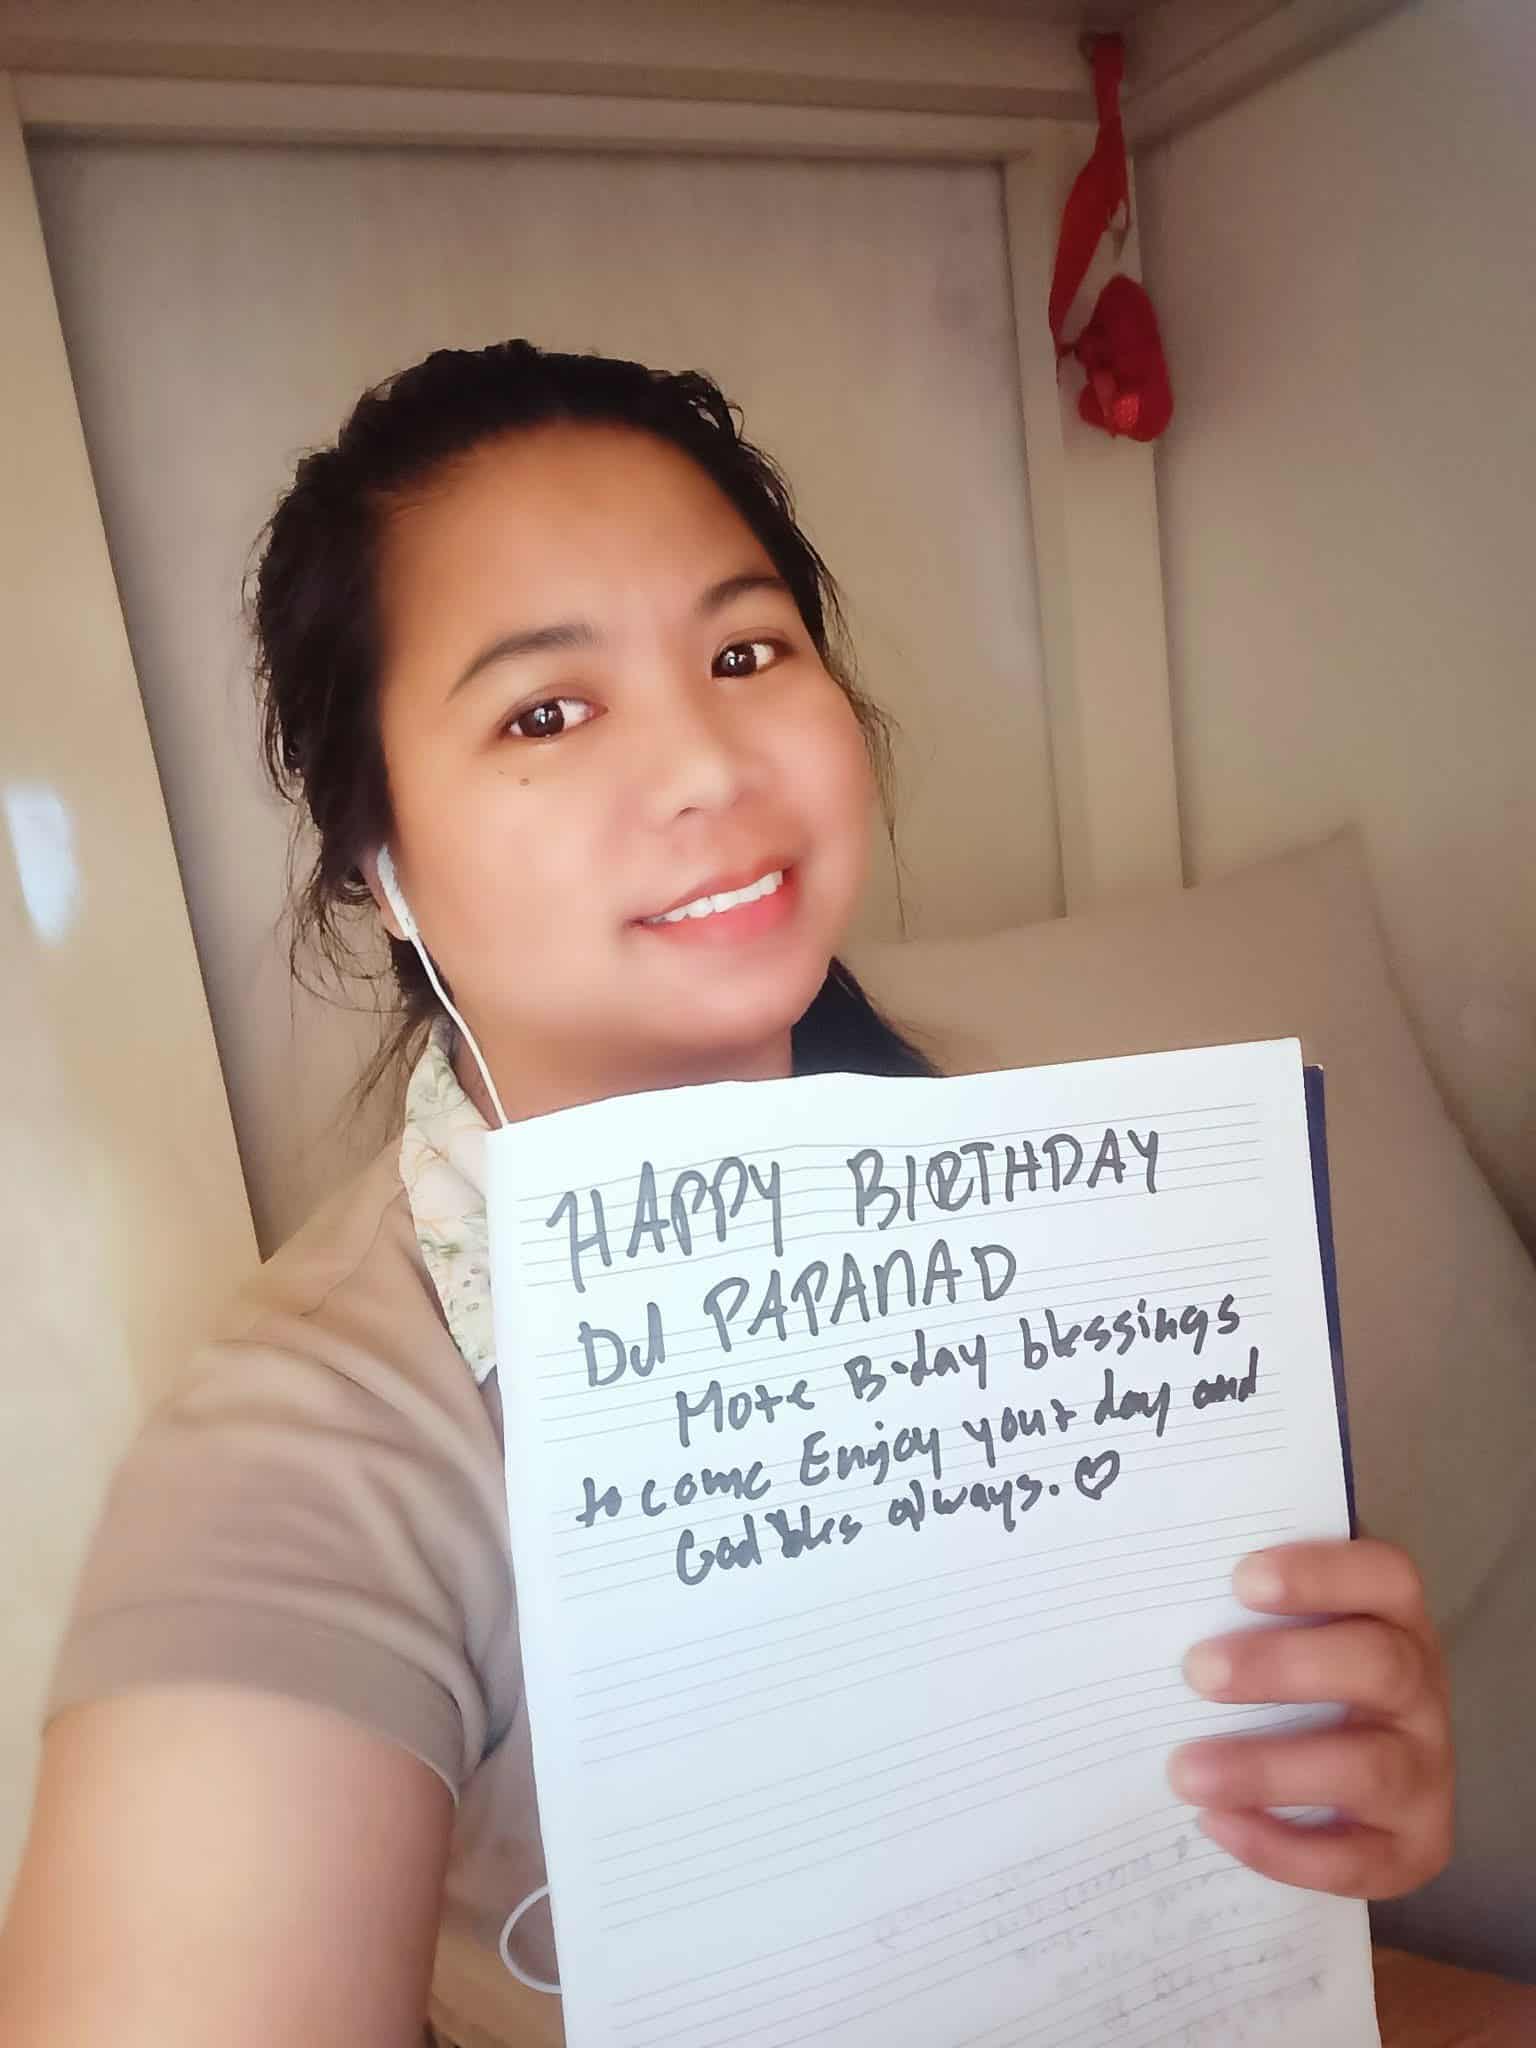 HAPPY BIRTHDAY
DJ PAPANAD
More B-day blessings
to come Enjoy your day and
God bles always.